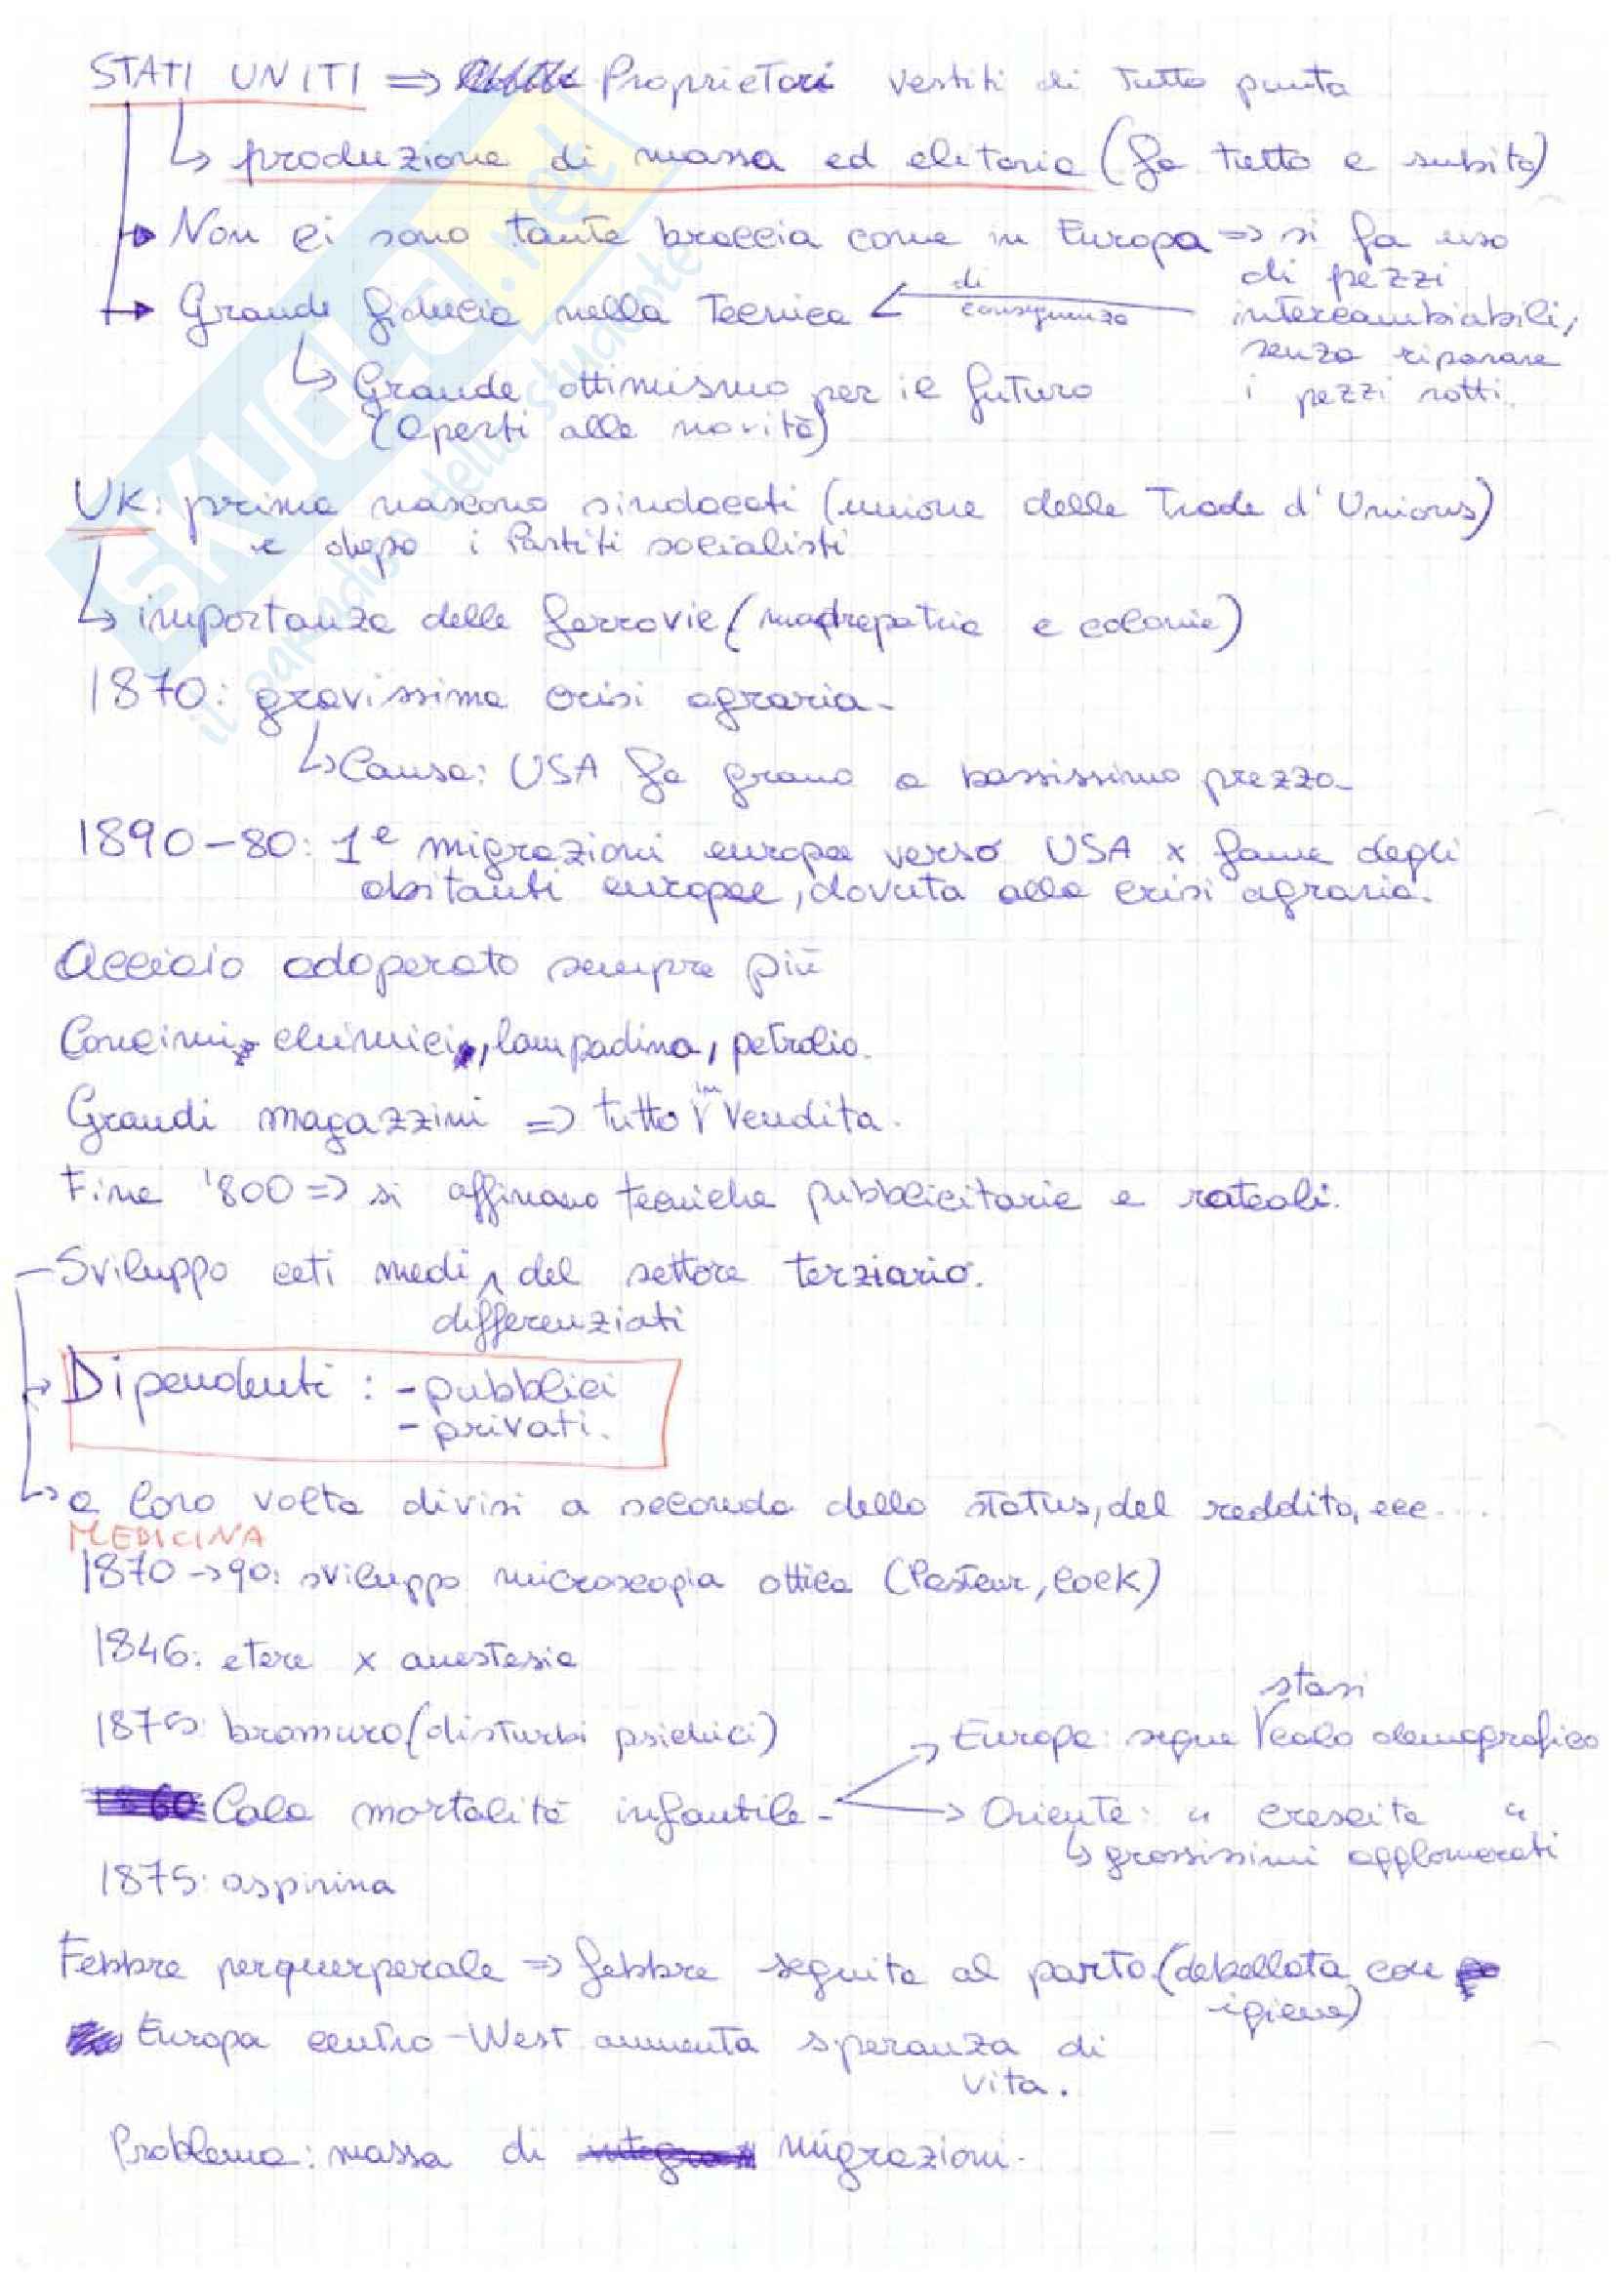 STATI UNITI ⇒ Proprietari vestiti di tutto punto
↳ produzione di massa ed elitaria (fa tutto e subito)
→ Non ci sono tante braccia come in Europa ⇒ si fa uso
di pezzi
intercambiabili,
senza riparare
i pezzi rotti.
→ Grande fiducia nella Tecnica ← di conseguenza
↳ Grande ottimismo per il futuro
(aperti alle novità)
UK: prima nascono sindacati (unione delle Trade d'Unions)
e dopo i Partiti socialisti
↳ importanza delle ferrovie (madrepatria e colonie)
1870: gravissima crisi agraria.
↳ Causa: USA fa grano a bassissimo prezzo.
1890-80: 1e migrazioni europee verso USA x fame degli
abitanti europee, dovuta alla crisi agraria.
Acciaio adoperato sempre più
Concimi chimici, lampadina, petrolio.
Grandi magazzini ⇒ tutto in vendita.
Fine '800 ⇒ si affinano tecniche pubblicitarie e rateali.
- Sviluppo ceti medi differenziati del settore terziario.
→ Dipendenti: - pubblici
- privati.
↳ a loro volta divisi a seconda dello status, del reddito, ecc....
MEDICINA
1870→90: sviluppo microscopia ottica (Pasteur, Cock)
1846: etere x anestesia
1875: bromuro (disturbi psichici)
Calo mortalità infantile -
→ Europa: segue stasi calo demografico
→ Oriente: " crescita "
↳ grossissimi agglomerati
1875: aspirina
Febbre perquerperale ⇒ febbre seguita al parto (debellata con
igiene)
Europa centro-West aumenta speranza di
vita.
Problema: massa di migrazioni.
SKUOLA.net
il paradiso dello studente